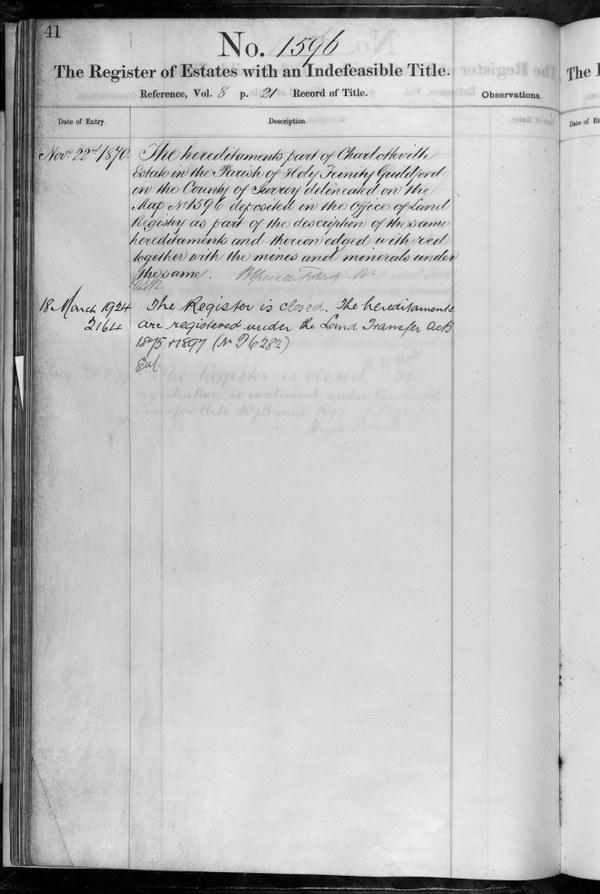 41
No. 1596
The Register of Estates with an Indefeasible Title.
Reference, Vol. 8 p. 21 Record of Title.
Observations.
Date of Entry
Description
Novr. 22nd 1870.
The hereditaments part of Charlotteville
Estate in the Parish of Holy Trinity Guildford
in the County of Surrey delineated on the
Map No 1596 deposited in the Office of Land
Registry as part of the description of the same
hereditaments and thereon edged with red
together with the mines and minerals under
the same.
18 March 1924
2164
The Register is closed. The hereditaments
are registered under the Land Transfer Acts
1875 & 1897 (No P6282)
The R
Date of En